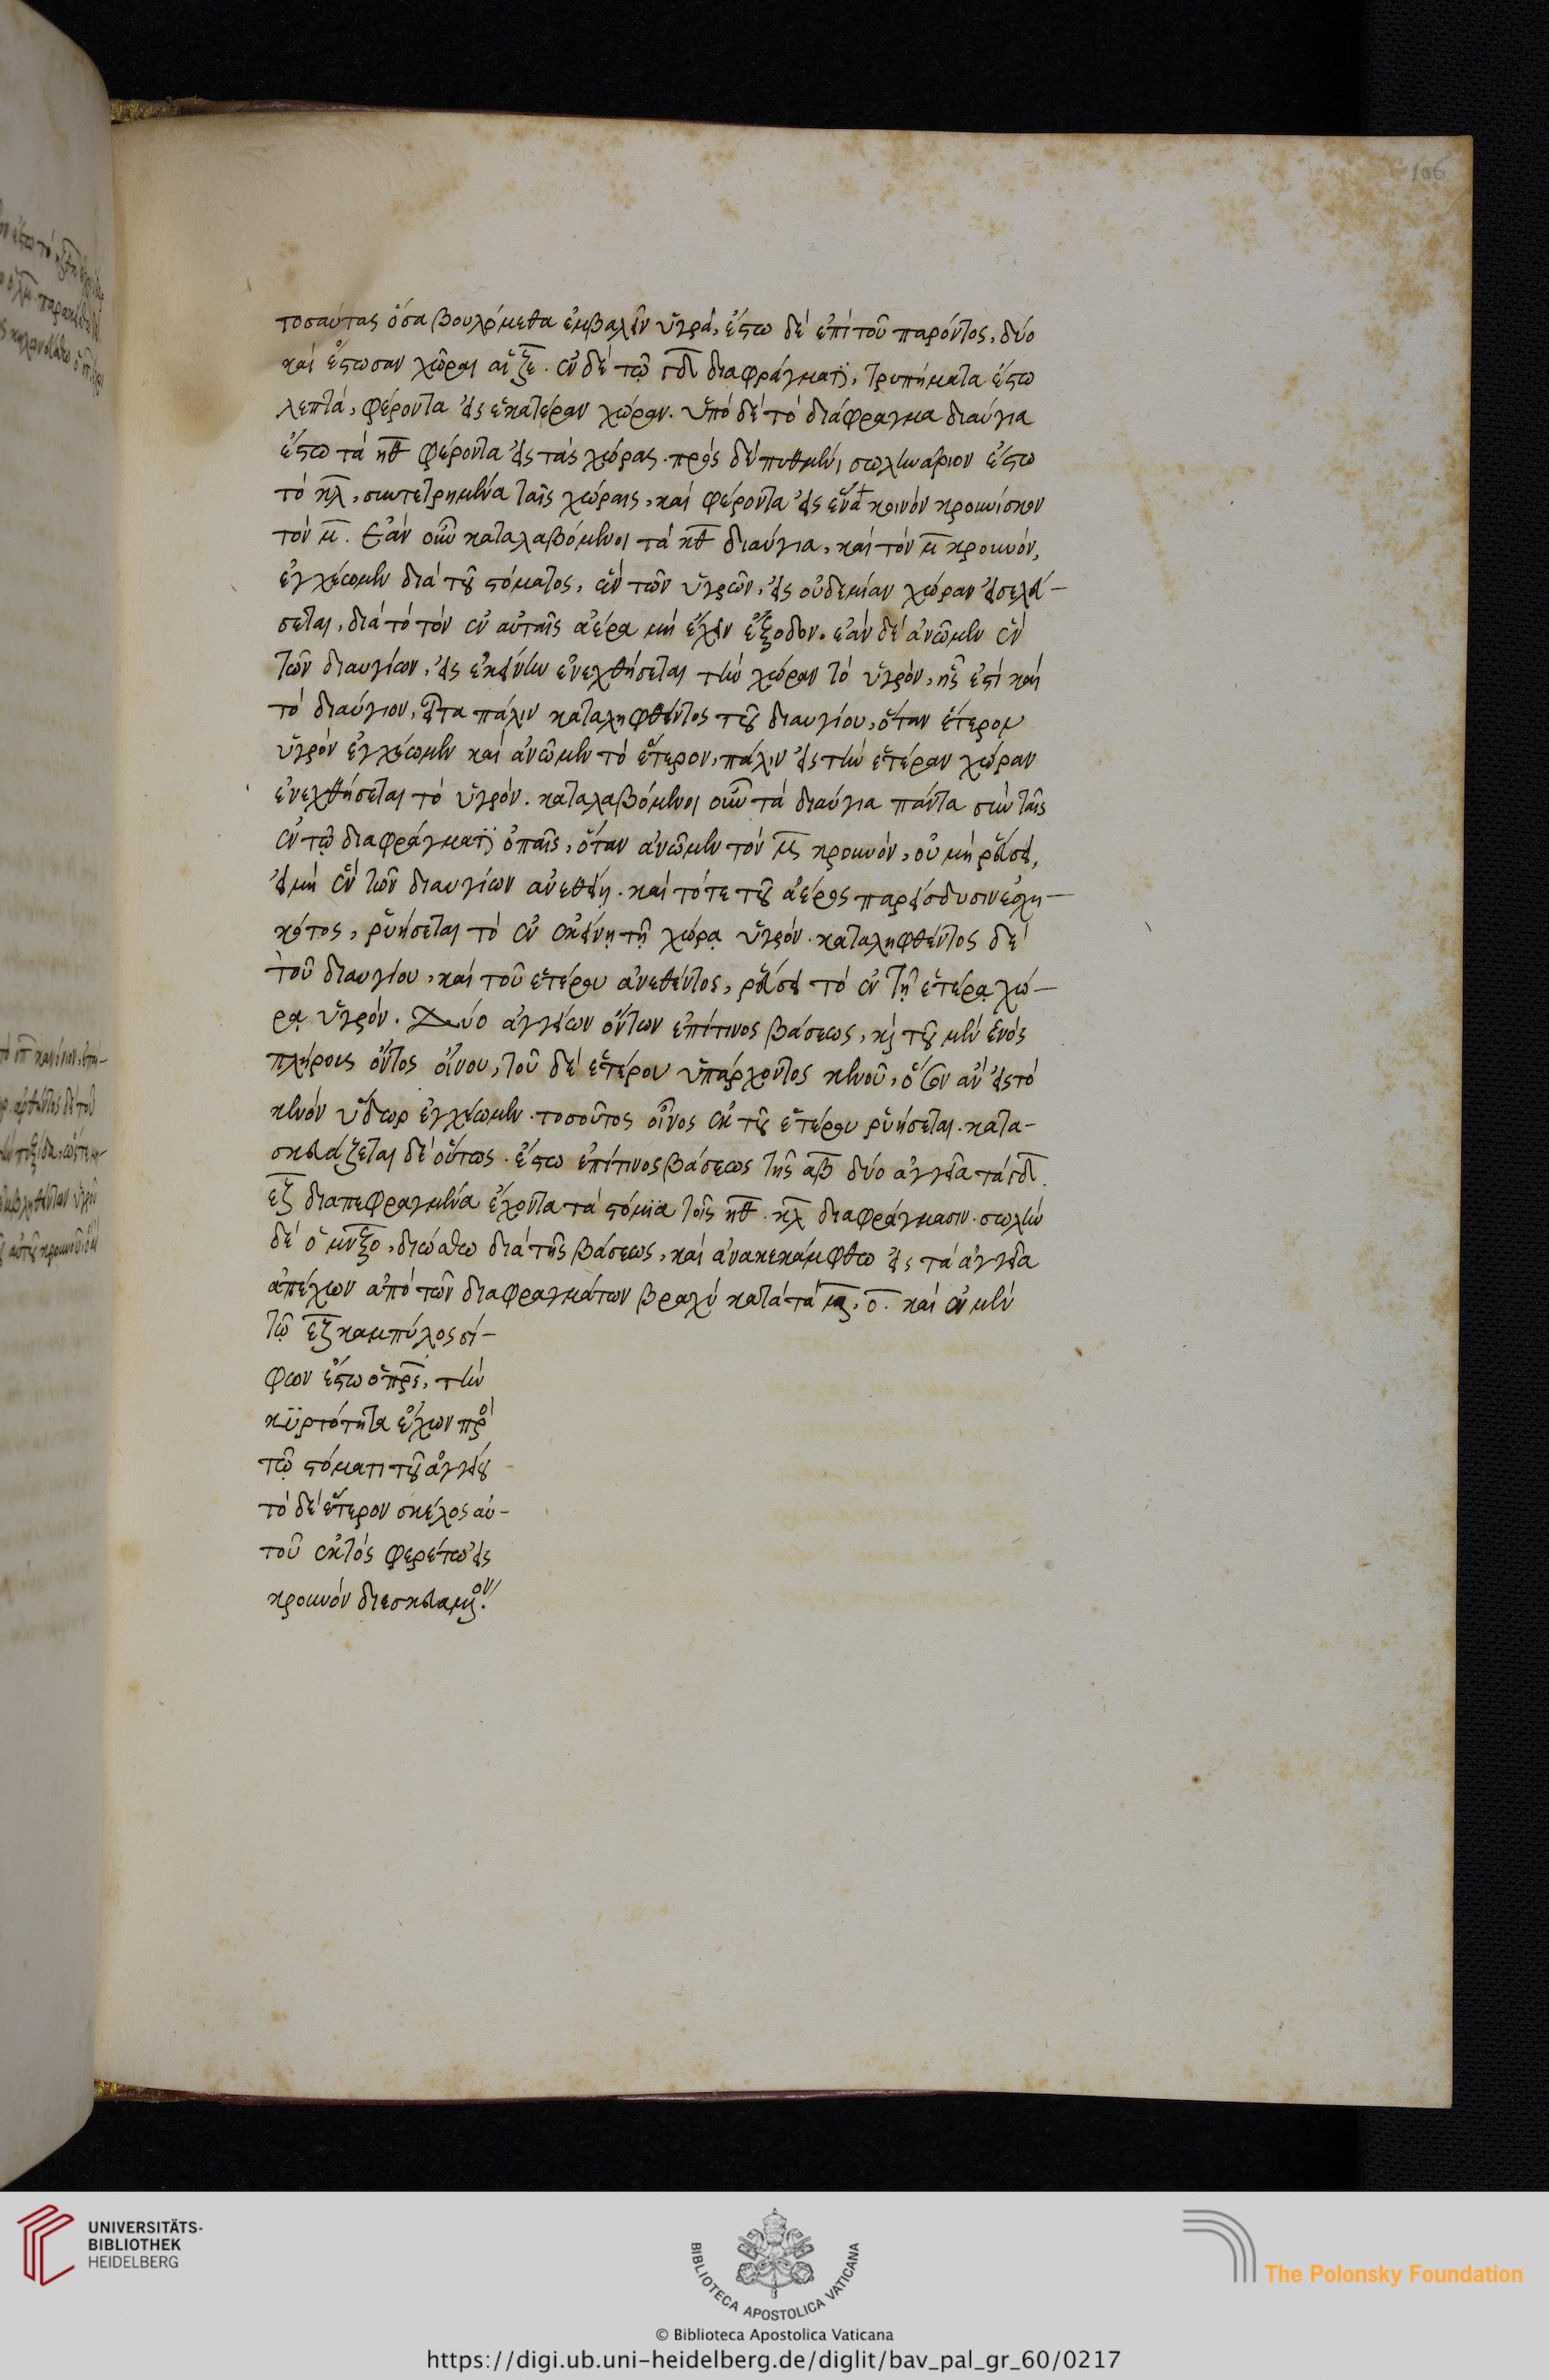 106
τοσαύτας ὅσα βουλόμεθα ἐμβαλεῖν ὑγρά, ἔστω δὲ ἐπὶ τοῦ παρόντος, δύο
καὶ ἔστωσαν χῶραι αἱ ζε. ἐν δὲ τῷ γδ διαφράγματι, τρυπήματα ἔστω
λεπτά, φέροντα εἰς ἑκατέραν χώραν. ὑπὸ δὲ τὸ διάφραγμα διαύγια
ἔστω τὰ ηθ φέροντα εἰς τὰς χώρας. πρὸς δὲ πυθμένι σωληνάριον ἔστω
τὸ κλ, συντετρημένα ταῖς χώραις, καὶ φέροντα εἰς ἕνα κοινὸν κρουνίσκον
τὸν μ. Ἐὰν οὖν καταλαβόμενοι τὰ κθ διαύγια, καὶ τὸν μ κρουνόν,
ἐγχέωμεν διὰ τοῦ στόματος, ἓν τῶν ὑγρῶν, εἰς οὐδεμίαν χώραν εἰσελεύ-
σεται, διὰ τὸ τὸν ἐν αὐταῖς ἀέρα μὴ ἔχειν ἔξοδον. ἐὰν δὲ ἀνῶμεν ἓν
τῶν διαυγίων, εἰς ἐκείνην ἐνεχθήσεται τὴν χώραν τὸ ὑγρόν, ἧς ἐστὶ καὶ
τὸ διαύγιον, εἶτα πάλιν καταληφθέντος τοῦ διαυγίου, ὅταν ἕτερον
ὑγρὸν ἐγχέωμεν καὶ ἀνῶμεν τὸ ἕτερον, πάλιν εἰς τὴν ἑτέραν χώραν
ἐνεχθήσεται τὸ ὑγρόν. καταλαβόμενοι οὖν τὰ διαύγια πάντα σὺν ταῖς
ἐν τῷ διαφράγματι ὀπαῖς, ὅταν ἀνῶμεν τὸν μ κρουνόν, οὐ μὴ ῥεύσει,
εἰ μὴ ἓν τῶν διαυγίων ἀνεθείη. καὶ τότε τοῦ ἀέρος παρείσδυσιν ἐσχη-
κότος, ῥυήσεται τὸ ἐν ἐκείνῃ τῇ χώρᾳ ὑγρόν. καταληφθέντος δὲ
τοῦ διαυγίου, καὶ τοῦ ἑτέρου ἀνεθέντος, ῥεύσει τὸ ἐν τῇ ἑτέρᾳ χώ-
ρᾳ ὑγρόν. Δύο ἀγγείων ὄντων ἐπί τινος βάσεως, καὶ τοῦ μὲν ἑνὸς
πλήρους ὄντος οἴνου, τοῦ δὲ ἑτέρου ὑπάρχοντος κενοῦ, ὅσον ἂν εἰς τὸ
κενὸν ὕδωρ ἐγχέωμεν. τοσοῦτος οἶνος ἐκ τοῦ ἑτέρου ῥυήσεται. κατα-
σκευάζεται δὲ οὕτως. ἔστω ἐπί τινος βάσεως τῆς αβ δύο ἀγγεῖα τὰ γδ.
εζ διαπεφραγμένα ἔχοντα τὰ στόμια τοῖς ηθ. κλ διαφράγμασιν. σωλὴν
δὲ ὁ μνξο, διώσθω διὰ τῆς βάσεως, καὶ ἀνακεκάμφθω εἰς τὰ ἀγγεῖα
ἀπέχων ἀπὸ τῶν διαφραγμάτων βραχὺ κατὰ τὰ μ, ο. καὶ ἐν μὲν
τῷ εζ καμπύλος σί-
φων ἔστω ὁ πρς, τὴν
κυρτότητα ἔχων πρὸ
τῷ στόματι τοῦ ἀγγείου
τὸ δὲ ἕτερον σκέλος αὐ-
τοῦ ἐκτὸς φερέτω εἰς
κρουνὸν διεσκευασμένον.
UNIVERSITÄTS-
BIBLIOTHEK
HEIDELBERG
BIBLIOTECA APOSTOLICA VATICANA
The Polonsky Foundation
© Biblioteca Apostolica Vaticana
https://digi.ub.uni-heidelberg.de/diglit/bav_pal_gr_60/0217